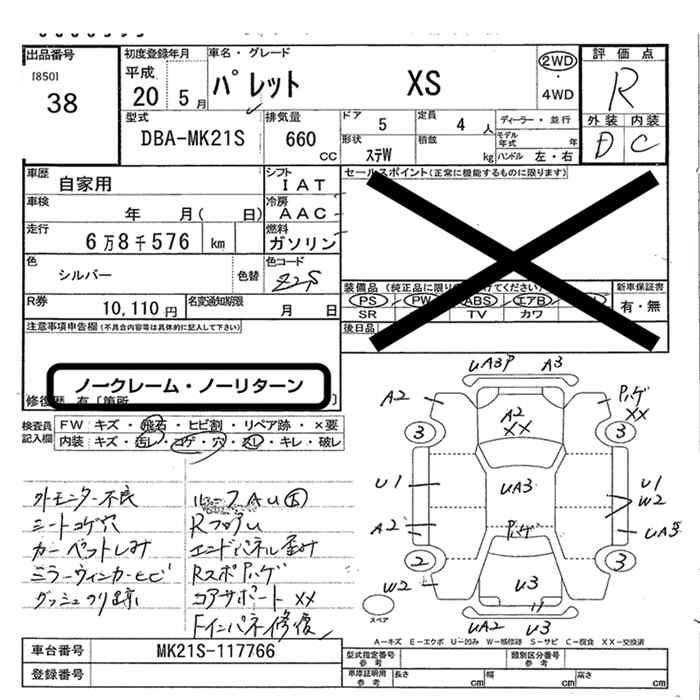 出品番号
[850]
38
初度登録年月
平成
20 5月
車名・グレード
パレット XS
2WD
・
4WD
評価点
R
外装 内装
D C
型式
DBA-MK21S
排気量
660
CC
ドア
5
定員
4 人
形状
ステW
積載
kg
ディーラー・並行
モデル年式 年
ハンドル 左・右
車歴
自家用
シフト
IAT
車検
年 月( 日)
冷房
AAC
走行
6万8千576 km
燃料
ガソリン
色
シルバー
色替
色コード
Z2S
R券
10,110円
名変通知期限
月 日
セールスポイント(正常に機能するものに限ります)
新車保証書
有・無
PS PW ABS エアB
SR TV カワ
後日品
注意事項申告欄(不具合内容等は具体的に記入して下さい)
ノークレーム・ノーリターン
検査員記入欄
FW キズ・飛石・ヒビ割・リペア跡・×要
内装 キズ・汚レ・コゲ・穴・スレ・キレ・破レ
外モニター不良
シートコゲ穴
カーペットしみ
ミラーウィンカーヒビ
Rフロアu
エンドパネル歪み
コアサポートXX
Fインパネ修復
UA3P A3
A2
A2
XX
XX
3 3
U1
UA3
U1
W2
A2
2 3
W2
U3
UA2 U3
スペア
A−キズ E−エクボ U−凹み W−補修跡 S−サビ C−腐食 XX−交換済
車台番号
MK21S-117766
登録番号
型式指定番号
参考
類別区分番号
参考
車庫証明用
参考
長さ cm 幅 cm 高さ cm